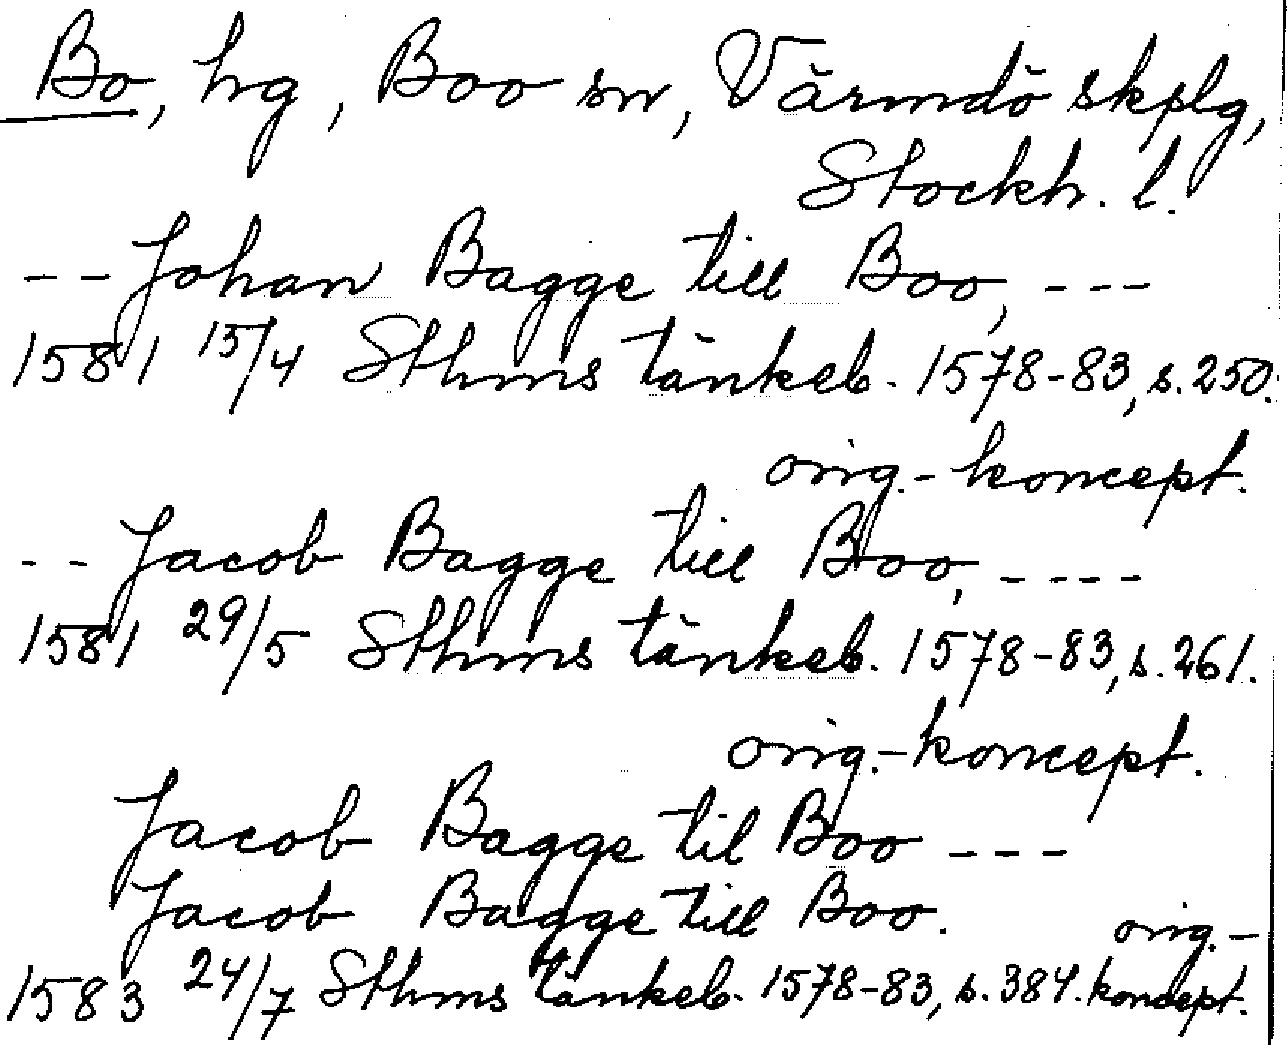 Bo, hg, Boo sn, Värmdö skplg,
Stockh. l.
-- Johan Bagge till Boo, ---
1581 15/4 Sthms tänkeb. 1578-83, s. 250.
orig.-koncept.
-- Jacob Bagge till Boo, ----
1581 29/5 Sthms tänkeb. 1578-83, s. 261.
orig.-koncept.
Jacob Bagge til Boo ---
Jacob Bagge till Boo.
1583 24/7 Sthms tänkeb. 1578-83, s. 384. orig.-koncept.